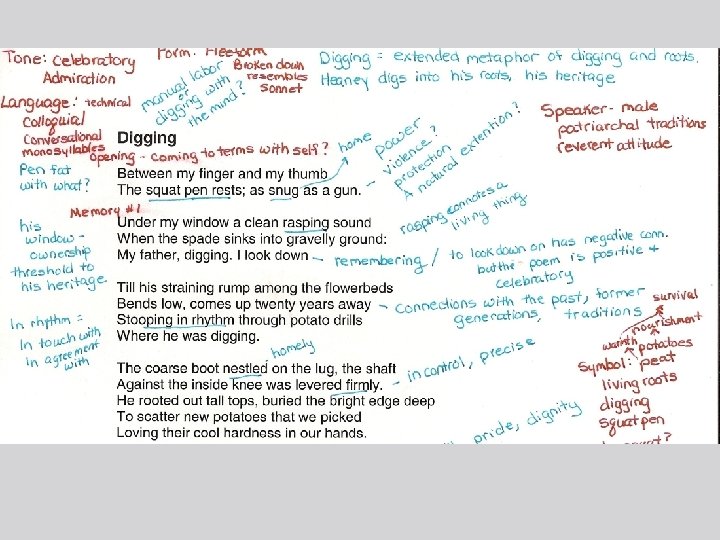 Tone: Celebratory
Admiration
Form: Freeform
Broken down
resembles
Sonnet
manual labor
or
digging with
the mind?
Digging = extended metaphor of digging and roots.
Heaney digs into his roots, his heritage
Language: technical
Colloquial
Conversational
monosyllables
Speaker - male
patriarchal traditions
reverent attitude
Digging
opening - coming to terms with self?
home
power
violence?
protection
A natural extention?
Pen fat
with what?
Between my finger and my thumb
The squat pen rests; as snug as a gun.
Memory #1
rasping connotes a
living thing
his
window -
ownership
threshold to
his heritage.
Under my window a clean rasping sound
When the spade sinks into gravelly ground:
My father, digging. I look down
- remembering / to look down on has negative conn.
but the poem is positive +
celebratory
Till his straining rump among the flowerbeds
Bends low, comes up twenty years away
Stooping in rhythm through potato drills
Where he was digging.
- Connections with the past, former
generations, traditions
In rhythm =
In touch with
In agreement
with
homely
survival
nourishment
warmth potatoes
Symbol: peat
living roots
digging
squat pen
The coarse boot nestled on the lug, the shaft
Against the inside knee was levered firmly.
- in control, precise
He rooted out tall tops, buried the bright edge deep
To scatter new potatoes that we picked
Loving their cool hardness in our hands.
pride, dignity